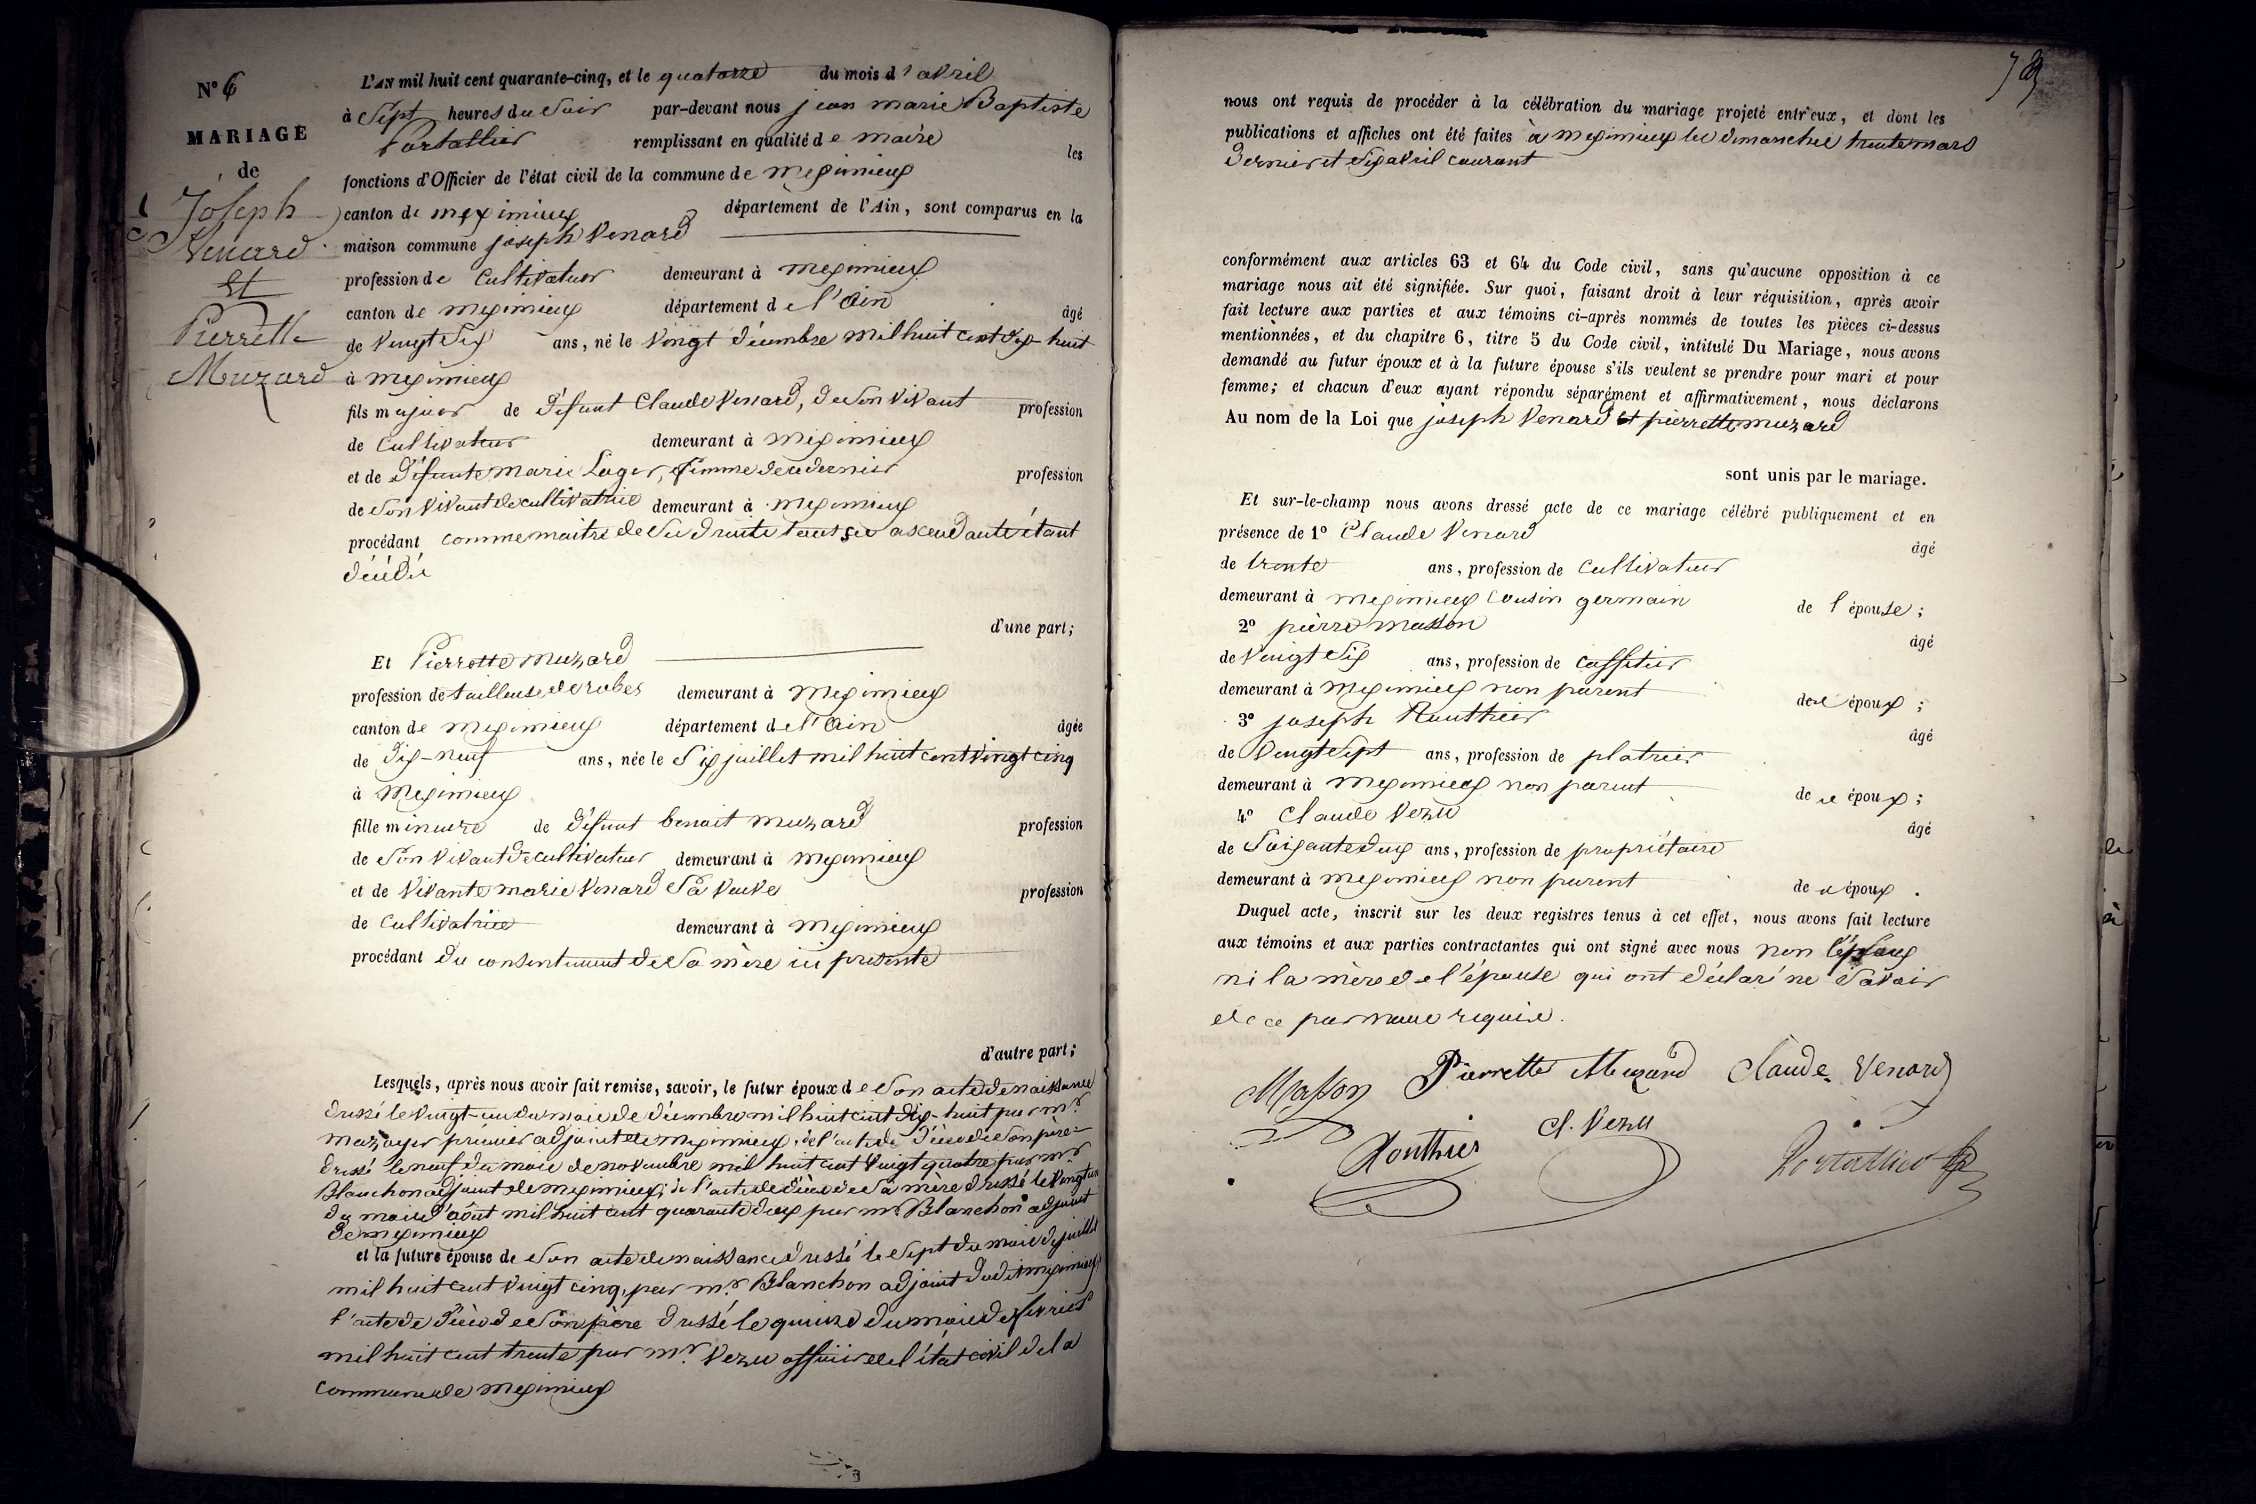 N° 6
MARIAGE
de
Joseph
Venard
Et
Pierrette
Muzard
L'AN mil huit cent quarante-cinq, et le quatorze du mois d'avril
à Sept heures du Soir par-devant nous jean marie Baptiste
Portallier remplissant en qualité de maire les
fonctions d'Officier de l'état civil de la commune de meximieux
canton de meximieux département de l'Ain, sont comparus en la
maison commune joseph Venard
profession de Cultivateur demeurant à meximieux
canton de meximieux département de l'Ain âgé
de Vingt Six ans, né le Vingt décembre mil huit cent dix-huit
à meximieux
fils majeur de défunt Claude Venard, de Son Vivant profession
de Cultivateur demeurant à meximieux
et de défunte marie Loger, femme de ce dernier profession
de Son Vivant de cultivatrice demeurant à meximieux
procédant comme maitre de Ses droits tous ses ascendants étant
décédés
d'une part;
Et Pierrette muzard
profession de tailleuse de robes demeurant à meximieux
canton de meximieux département de l'Ain âgée
de dix-neuf ans, née le Six juillet mil huit cent vingt cinq
à Meximieux
fille mineure de défunt benoit muzard profession
de Son Vivant de cultivateur demeurant à meximieux
et de Vivante marie Venard Sa Veuve profession
de Cultivatrice demeurant à meximieux
procédant du consentement de Sa mère ici présente
d'autre part;
Lesquels, après nous avoir fait remise, savoir, le futur époux de Son acte de naissance
dressé le Vingt-un du mois de décembre mil huit cent dix-huit par mr
mazoyer prémier adjoint de meximieux, de l'acte de décès de Son père
dressé le neuf du mois de novembre mil huit cent Vingt quatre par mr
Blanchon adjoint de meximieux; de l'acte de décès de Sa mère dressé le Vingt un
du mois d'août mil huit cent quarante deux par mr Blanchon adjoint
de meximieux
et la future épouse de Son acte de naissance dressé le Sept du mois de juillet
mil huit cent Vingt cinq, par mr Blanchon adjoint dudit meximieux
l'acte de décès de Son père dressé le quinze du mois de février
mil huit cent trente par mr Vezu officier de l'état civil de la
commune de meximieux
79
nous ont requis de procéder à la célébration du mariage projeté entr'eux, et dont les
publications et affiches ont été faites à meximieux les dimanches trente mars
dernier et Six avril courant
conformément aux articles 63 et 64 du Code civil, sans qu'aucune opposition à ce
mariage nous ait été signifiée. Sur quoi, faisant droit à leur réquisition, après avoir
fait lecture aux parties et aux témoins ci-après nommés de toutes les pièces ci-dessus
mentionnées, et du chapitre 6, titre 5 du Code civil, intitulé Du Mariage, nous avons
demandé au futur époux et à la future épouse s'ils veulent se prendre pour mari et pour
femme; et chacun d'eux ayant répondu séparément et affirmativement, nous déclarons
Au nom de la Loi que joseph Venard et pierrette muzard
sont unis par le mariage.
Et sur-le-champ nous avons dressé acte de ce mariage célébré publiquement et en
présence de 1° Claude Venard âgé
de trente ans, profession de Cultivateur
demeurant à meximieux Cousin germain de l'épouse;
2° pierre masson âgé
de Vingt Six ans, profession de Caffetier
demeurant à meximieux non parent des époux;
3° joseph Ronthier âgé
de Vingt Sept ans, profession de platrier
demeurant à meximieux non parent des époux;
4° Claude Vezu âgé
de Soixante deux ans, profession de propriétaire
demeurant à meximieux non parent des époux.
Duquel acte, inscrit sur les deux registres tenus à cet effet, nous avons fait lecture
aux témoins et aux parties contractantes qui ont signé avec nous non l'époux
ni la mère de l'épouse qui ont déclaré ne Savoir
de ce par nous requis.
Masson Pierrette Muzard Claude Venard
Ronthier cl. Vezu Portallier